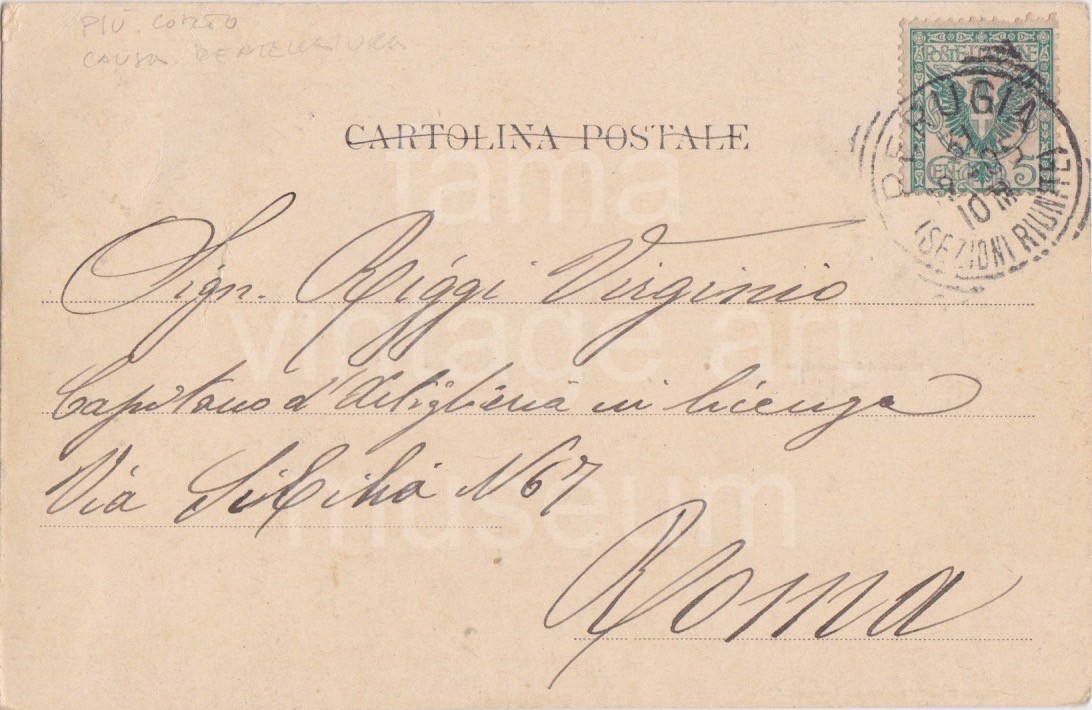 PIÙ CORTO
CAUSA DENTELLATURA
CARTOLINA POSTALE
POSTE ITALIANE
CENT 5
PERUGIA
10 M
(SEZIONI RIUNITE)
fama
vintage art
museum
Sign. Riggi Virginio
Capitano d'Artiglieria in licenza
Via Sicilia N 67
Roma